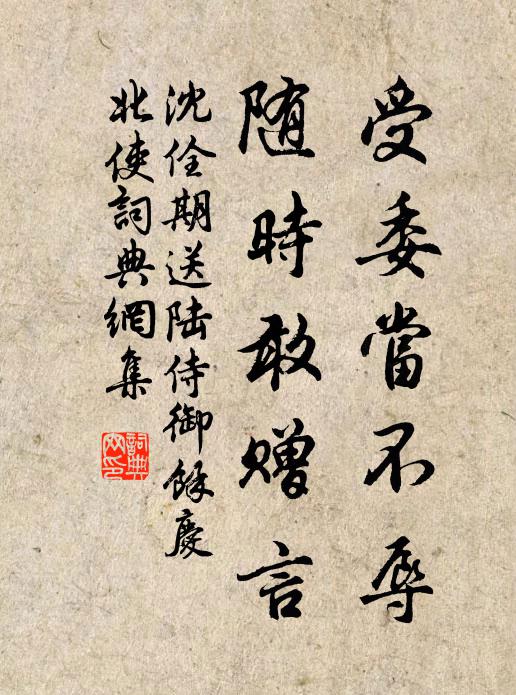 受委當不辱
随時敢贈言
沈佺期送陆侍御餘慶
北使詞典網集
詞典网印